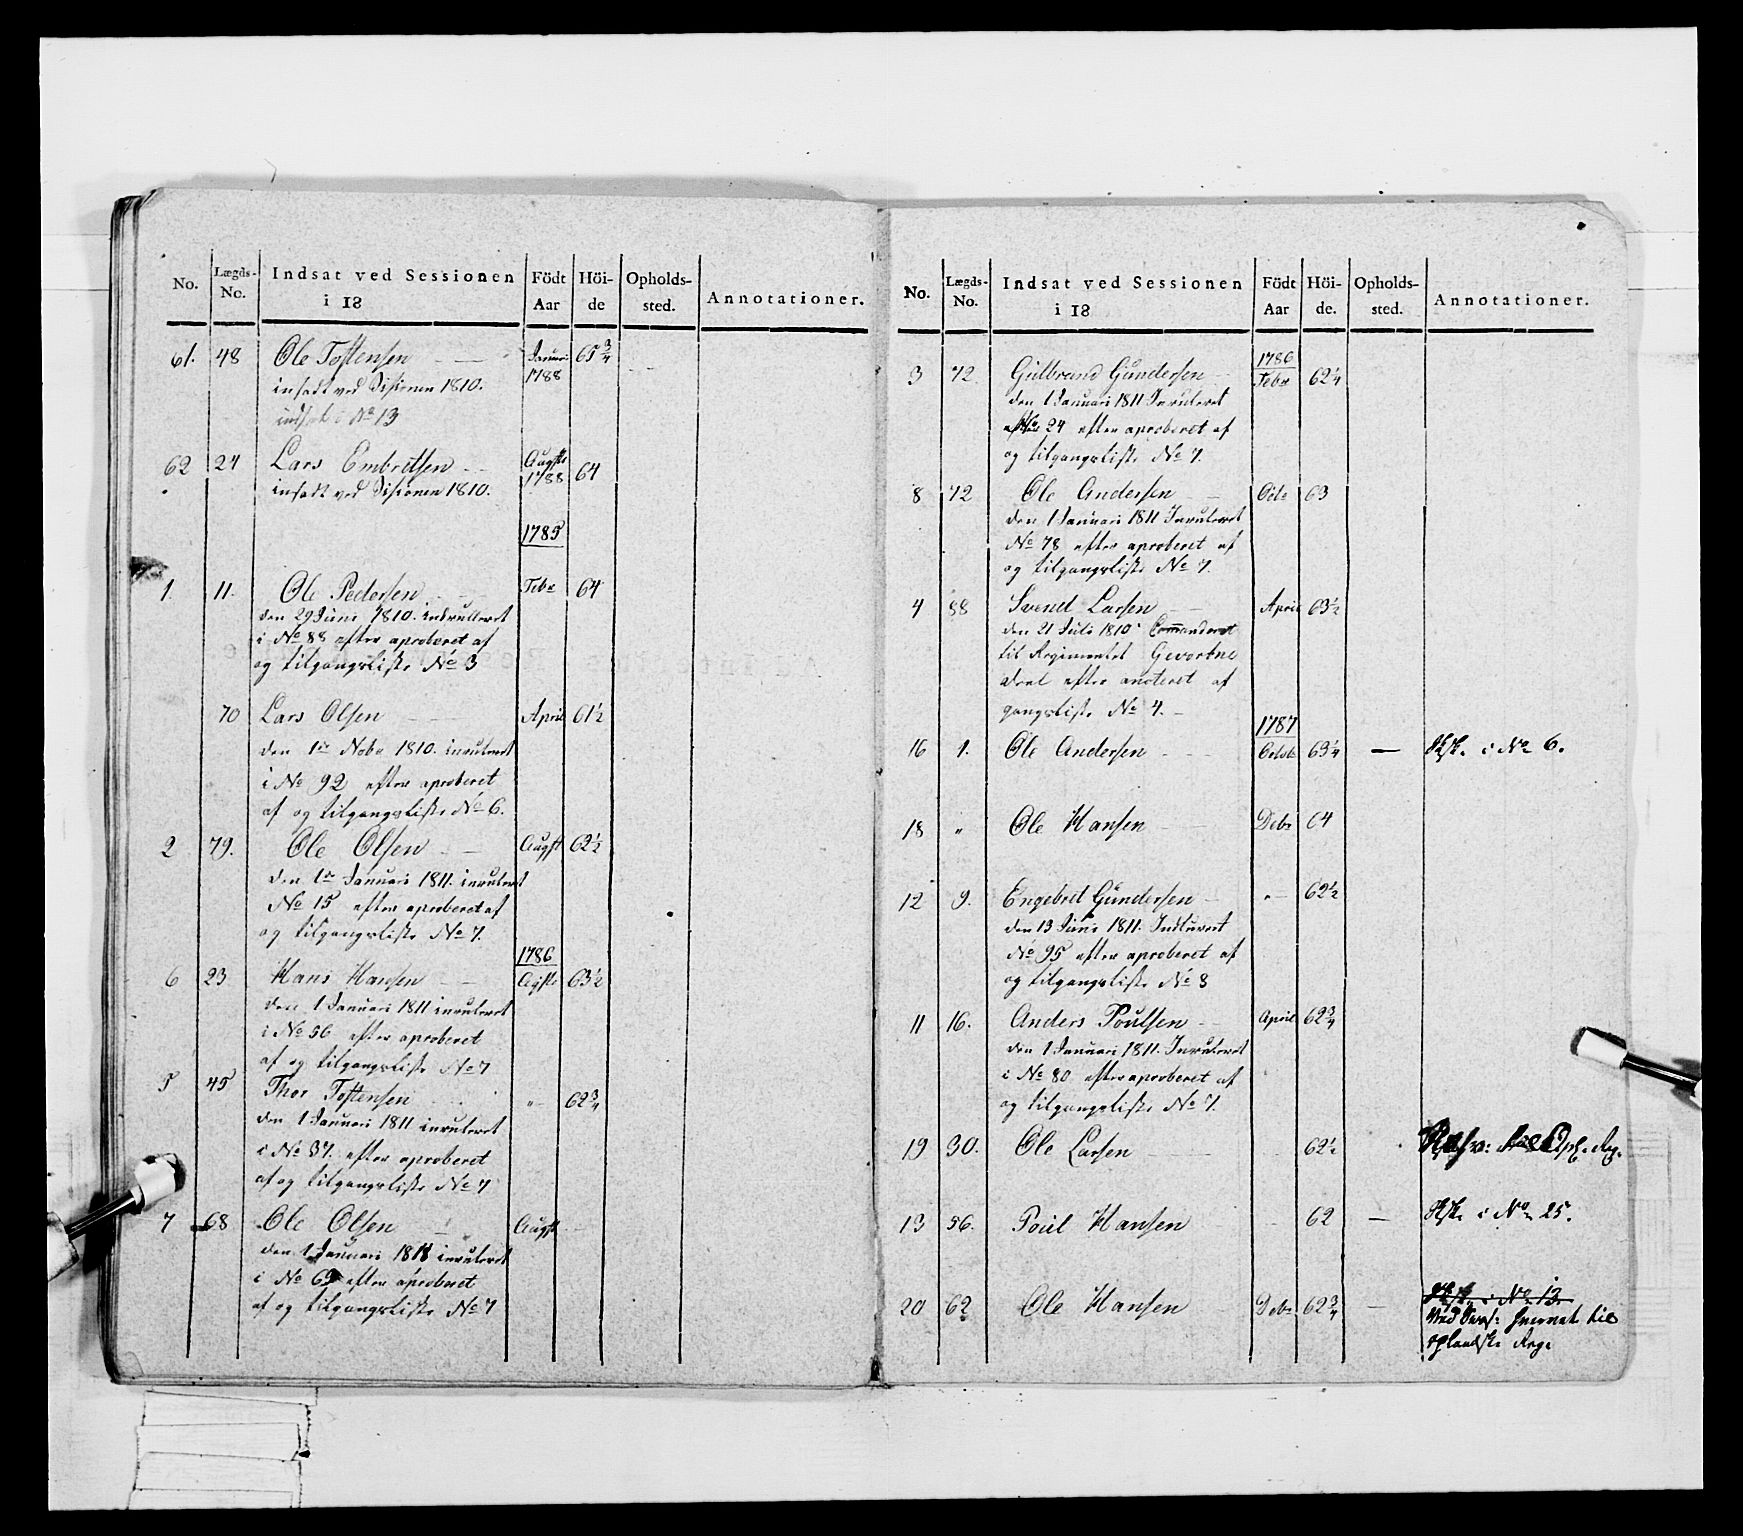 No. Lægds-No. Indsat ved Sessionen i 18 Födt Aar Höi-de Opholds-sted. Annotationer.
61. 48 Ole Tostensen Januari 1788 65 3/4
insadt ved Sisionen 1810.
indsat i No 13
62 24 Lars Embretsen Augst 1788 64
insadt ved Sisionen 1810.
1785
1. 11. Ole Pedersen Febr 64
den 29 Juni 1810. indrulleret
i No 88 efter aproberet af
og tilgangsliste No 3
70 Lars Olsen April 61 1/2
den 1te Nobr 1810. inruleret
i No 92 efter aproberet
af og tilgangsliste No 6.
2 79. Ole Olsen Augst 62 1/2
den 1te Januari 1811. inruleret
No 15 efter aproberet af
og tilgangsliste No 7.
1786
6 23 Hans Hansen Agste 63 1/2
den 1 Januari 1811 inruleret
i No 56 efter aproberet
af og tilgangsliste No 7
5 45 Thor Tostensen " 62 3/4
den 1 Januari 1811 inruleret
i No 37. efter aproberet
af og tilgangsliste No 7
7 68 Ole Olsen Augst
den 1 Januari 1811 inruleret
i No 69 efter aproberet
af og tilgangsliste No 7
No. Lægds-No. Indsat ved Sessionen i 18 Födt Aar Höi-de. Opholds-sted. Annotationer.
1786
3 72 Gulbrand Gundersen Febr 62 1/4
den 1 Januari 1811 Inruleret
No 24 efter aproberet af
og tilgangsliste No 7.
8 72 Ole Andersen Octo 63
den 1 Januari 1811 Inruleret
No 78 efter aproberet af
og tilgangsliste No 7.
4 88 Svend Larsen April 63 1/2
den 21 Juli 1810 Commanderet
til Regimentet Gevorbne
deel efter anoteret af
gangsliste No 4.
1787
16 1. Ole Andersen Octob 63 1/4 — Afsk. i No 6.
18 " Ole Hansen Debr 64
12 9. Engebret Gundersen " 62 1/2
den 13 Juni 1811. Indluret
No 95 efter aproberet af
og tilgangsliste No 8
11 16. Anders Poulsen April 62 3/4
den 1 Januari 1811. Inruleret
i No 80 efter aproberet af
og tilgangsliste No 7.
19 30. Ole Larsen 62 1/2 til Opl. Reg.
13 56. Poul Hansen 62 — Afsk. i No 25.
20 62 Ole Hansen Debr 62 3/4 — Afsk. i No 13.
til
oplandske Reg.